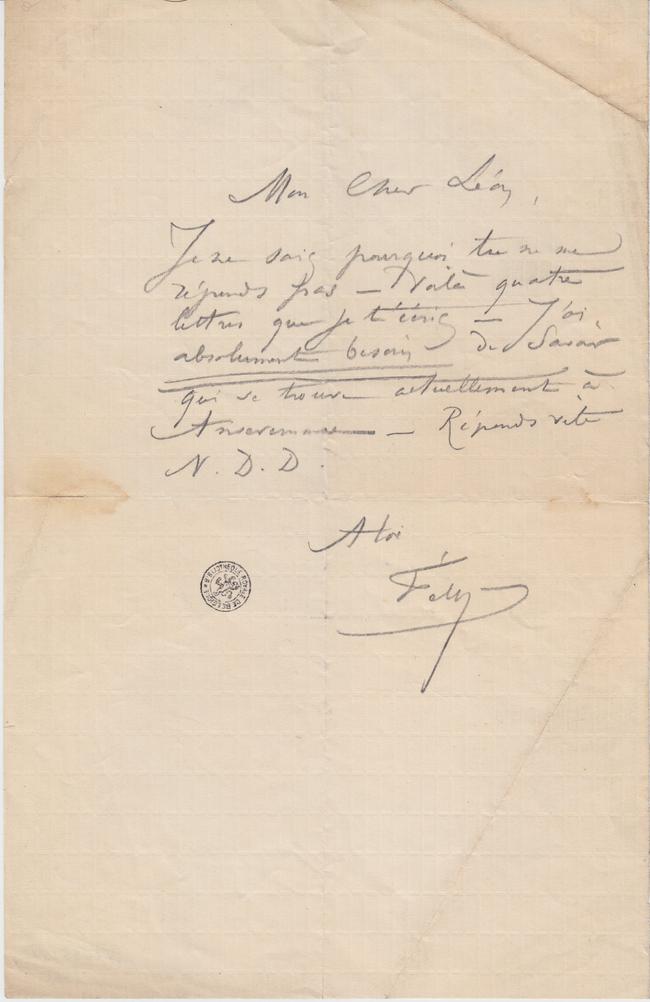 Mon Cher Léon,
Je ne sais pourquoi tu ne me
réponds pas — Voilà quatre
lettres que je t'écris — J'ai
absolument besoin de Savoir
qui se trouve actuellement à
Anseremme — Réponds vite
N. D. D.
A toi
Fély
BIBLIOTHÈQUE ROYALE DE BELGIQUE